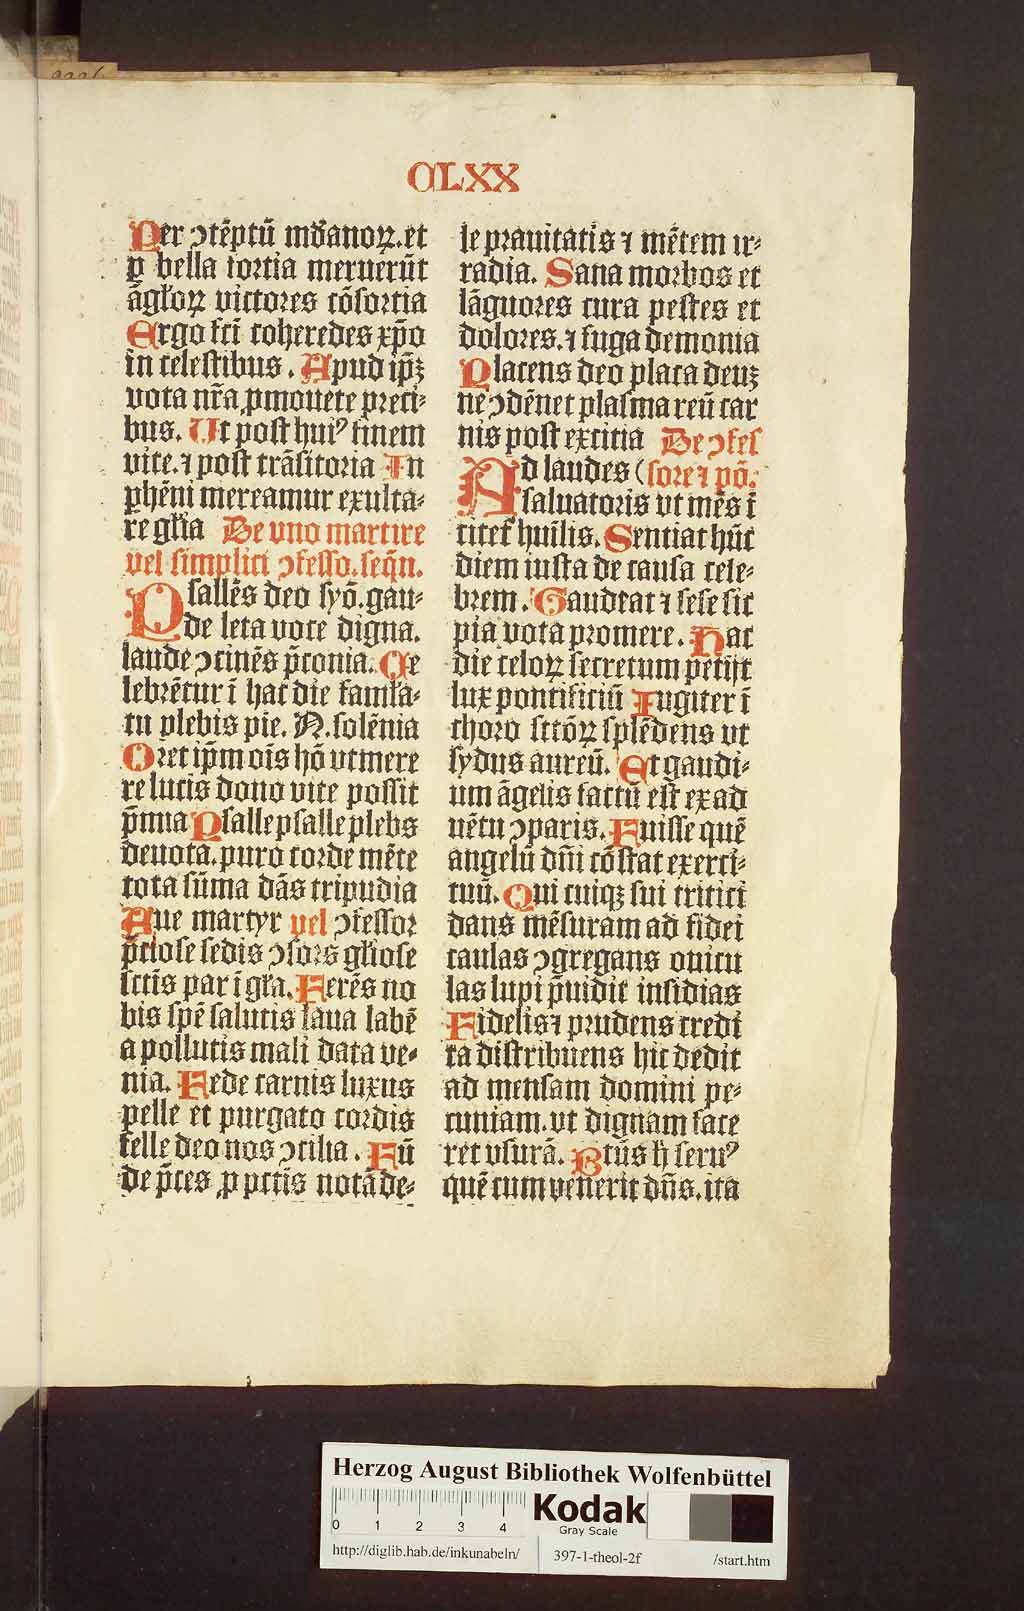 CLXX
Per ꝯtēptū mūdanoꝝ. et
ꝑ bella fortia meruerūt
āgloꝝ victores cōsortia
Ergo scī coheredes xp̄o
in celestibus. Apud ip̄ꝫ
vota nr̄a ꝓmouete preci⸗
bus. Ut post huiꝰ finem
vite. ⁊ post trāsitoria In
phēni mereamur exulta⸗
re gl̄ia De vno martire
vel simplici ꝯfesso. seqn̄.
Psallēs deo syō. gau⸗
de leta voce digna.
laude ꝯcinēs p̄conia. Ce
lebrētur ī hac die famla⸗
tu plebis pie. N. solēnia
Oret ip̄m oīs hō vt mere
re lucis dono vite possit
p̄mia Psalle psalle plebs
deuota. puro corde mēte
tota sūma dās tripudia
Aue martyr vel ꝯfessor
p̄ciose sedis ꝯsors gl̄iose
sctīs par ī gl̄a. Ferēs no
bis spē salutis laua labē
a pollutis mali data ve⸗
nia. Fede carnis luxus
pelle et purgato cordis
felle deo nos ꝯcilia. Fū
de p̄ces ꝓ pctīs notā de⸗
le prauitatis ⁊ mētem ir⸗
radia. Sana morbos et
lāguores cura pestes et
dolores. ⁊ fuga demonia
Placens deo placa deuꝫ
ne ꝯdēnet plasma reū car
nis post exitia De ꝯfes
Ad laudes (sore ⁊ pō.
saluatoris vt mēs ī
citet hūilis. Sentiat hūc
diem iusta de causa cele⸗
brem. Gaudeat ⁊ sese sic
pia vota promere. Hac
die celoꝝ secretum petijt
lux pontificiū Iugiter ī
choro sctōꝝ splēdens vt
sydus aureū. Et gaudi⸗
um āgelis factū est ex ad
uētu ꝯparis. Fuisse quē
angelū dn̄i cōstat exerci⸗
tuū. Qui cuiqꝫ sui tritici
dans mēsuram ad fidei
caulas ꝯgregans ouicu
las lupi p̄uidit insidias
Fidelis ⁊ prudens credī
ta distribuens hic dedit
ad mensam domini pe⸗
cuniam. vt dignam face
ret vsurā. Btūs h̄ seruꝰ
quē cum venerit dn̄s. ita
Herzog August Bibliothek Wolfenbüttel
0 1 2 3 4
Kodak
Gray Scale
http://diglib.hab.de/inkunabeln/ 397-1-theol-2f /start.htm